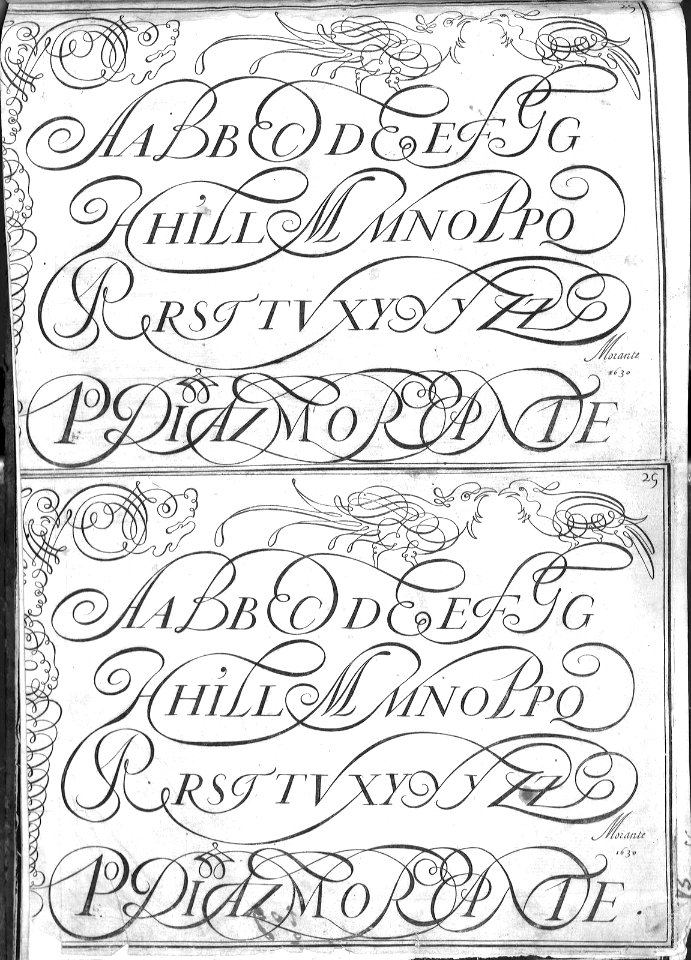 25
AABBCCDDEEFFGG
HHILLMMNOPPQ
RRSTTVXYYYZZZ
Morante
1630
PO DIAZ MORANTE
25
AABBCCDDEEFFGG
HHILLMMNOPPQ
RRSTTVXYYYZZZ
Morante
1630
PO DIAZ MORANTE